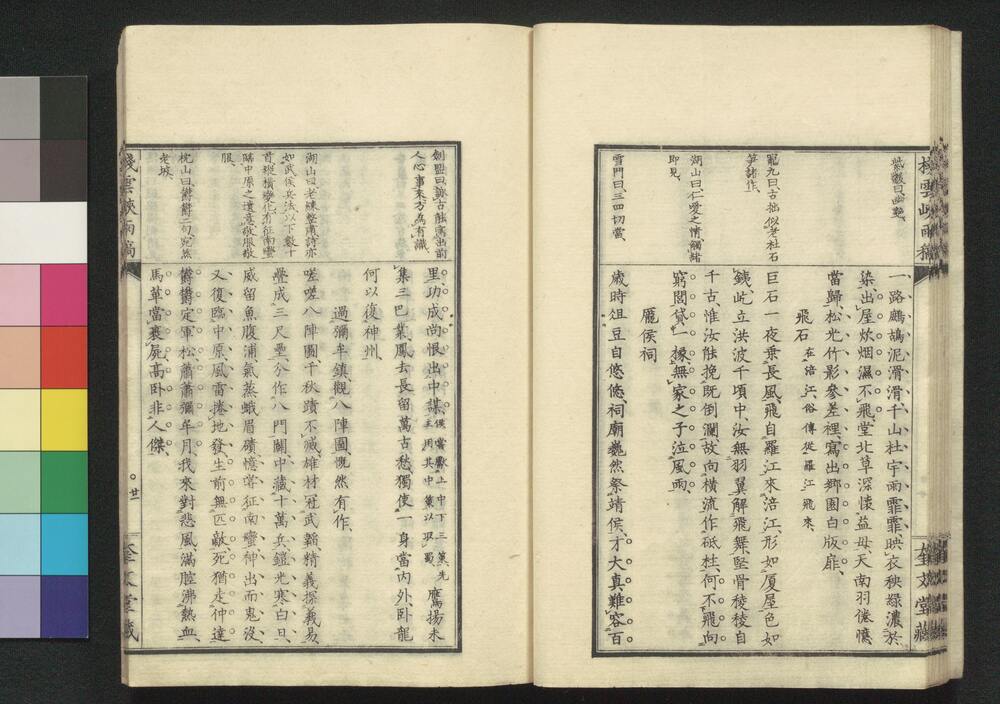 棧雲峽雨稿
奎文堂藏
一路鷓鴣泥滑滑、千山杜宇雨霏霏、映衣秧綠濃於
染、出屋炊烟濕不飛、堂北草深懷益母、天南羽倦憶
當歸、松光竹影參差裡、寫出鄉園白版扉、
飛石 在涪江、俗傳從羅江飛來、
巨石一夜乘長風、飛自羅江來涪江、形如厦屋色如
銕、屹立洪波千頃中、汝無羽翼解飛舞、堅骨稜稜自
千古、惟汝能挽既倒瀾、故向橫流作砥柱、何不飛向
窮閻貸一椽、無家之子泣風雨、
龐侯祠
歲時俎豆自悠悠、祠廟巍然祭靖侯、才大真難容百
冠九曰、古拙似老杜石
笋諸作、
湖山曰、仁愛之情、觸諸
即見、
雪門曰、三四切當、
里、功成尚恨出中謀、侯嘗獻上中下三策、先主用其中策以取蜀、鷹揚未
集三巴業、鳳去長留萬古愁、獨使一身當內外、臥龍
何以復神州、
過彌牟鎮、觀八陣圖、慨然有作、
嗟嗟八陣圖、千秋蹟不滅、雄材冠武韜、精義探羲易、
疊成三尺壘、分作八門闢、中藏十萬兵、鎧光寒白日、
威留魚腹浦、氣蒸蛾眉磧、憶嘗征南蠻、神出而鬼沒、
又復臨中原、風雷捲地發、生前無匹敵、死猶走仲達、
鬱鬱定軍松、蕭蕭彌牟月、我來對悲風、滿腔沸熱血、
馬革當裹屍、高臥非人傑、
劍盟曰、詠古能寫出前
人心事、來方為有識、
湖山曰、老練整肅、詩亦
如武侯兵法、以下數十
首、縱橫變化、有征南蠻
臨中原之遺意、敬服敬
服、
枕山曰、鬱鬱二句、宛然
老坡、
棧雲峽雨稿
廿一
奎文堂藏